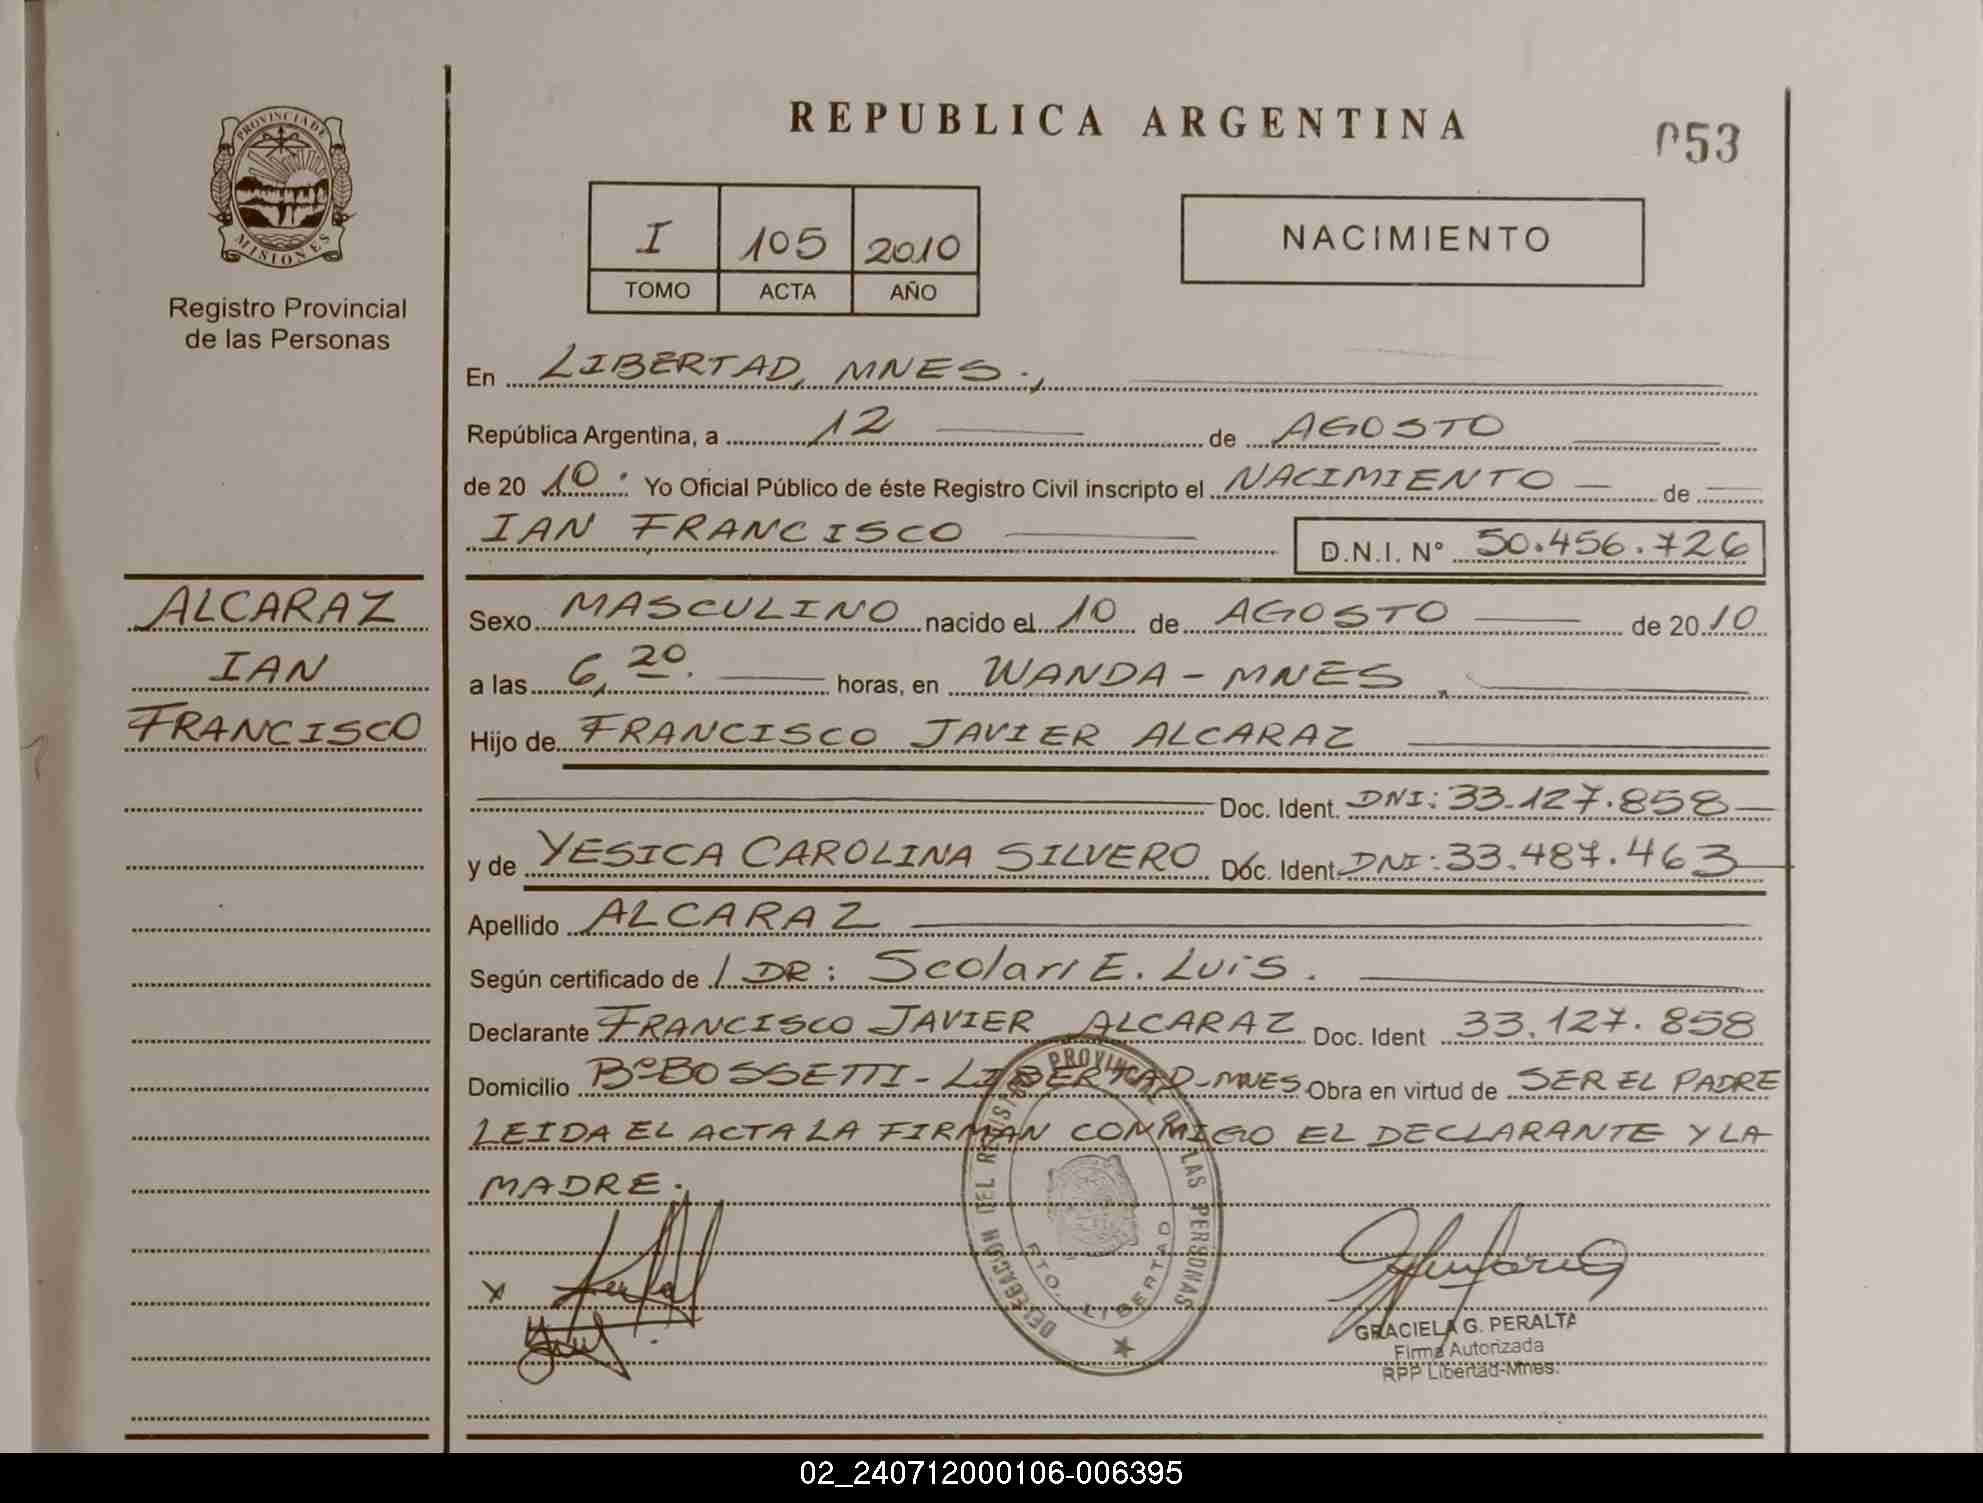 REPUBLICA ARGENTINA
053
PROVINCIA DE MISIONES
Registro Provincial
de las Personas
I 105 2010
TOMO ACTA AÑO
NACIMIENTO
En LIBERTAD, MNES.,
República Argentina, a 12 de AGOSTO
de 20 10. Yo Oficial Público de éste Registro Civil inscripto el NACIMIENTO de
IAN FRANCISCO D.N.I. N° 50.456.726
ALCARAZ
IAN
FRANCISCO
Sexo MASCULINO nacido el 10 de AGOSTO de 20 10
a las 6,20. horas, en WANDA - MNES.
Hijo de FRANCISCO JAVIER ALCARAZ
Doc. Ident. DNI: 33.127.858
y de YESICA CAROLINA SILVERO Doc. Ident. DNI: 33.487.463
Apellido ALCARAZ
Según certificado de DR: Scolari E. Luis.
Declarante FRANCISCO JAVIER ALCARAZ Doc. Ident 33.127.858
Domicilio B° BOSSETTI - LIBERTAD - MNES Obra en virtud de SER EL PADRE
LEIDA EL ACTA LA FIRMAN CONMIGO EL DECLARANTE Y LA
MADRE.
DELEGACION DEL REGISTRO PROVINCIAL DE LAS PERSONAS
PTO. LIBERTAD
X
GRACIELA G. PERALTA
Firma Autorizada
RPP Libertad-Mnes.
02_240712000106-006395